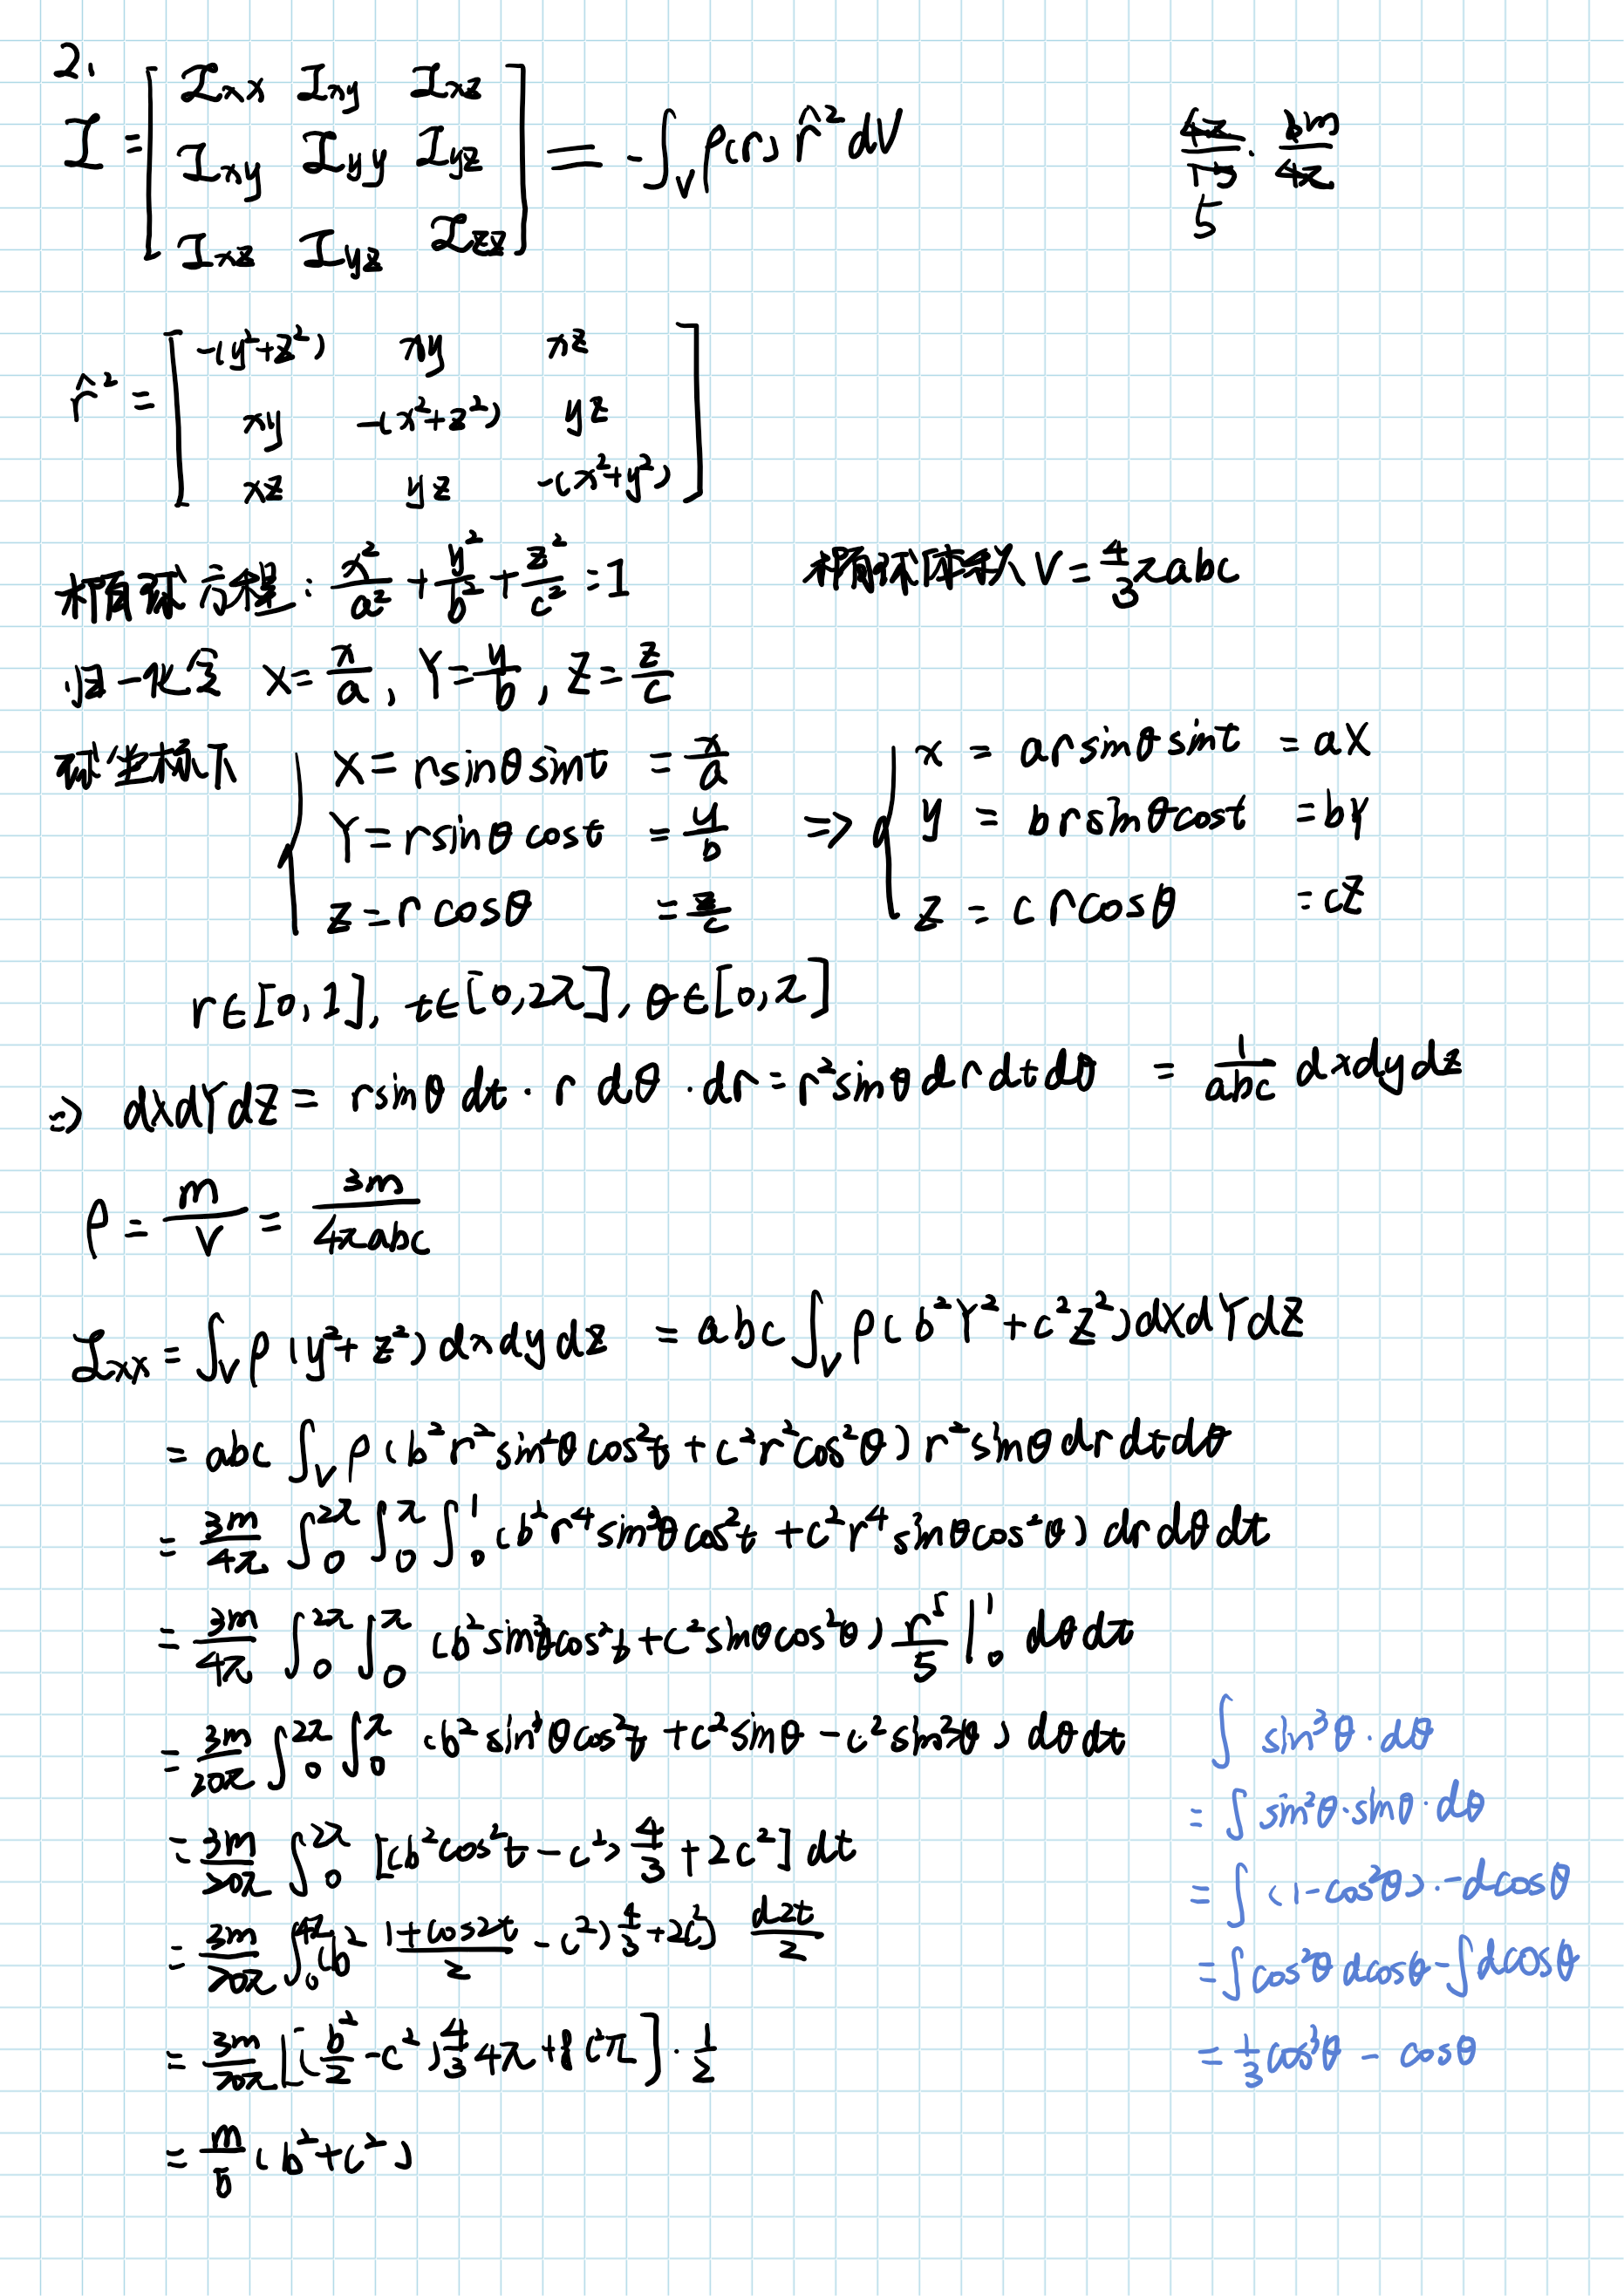 2.
I = [ Ixx Ixy Ixz
Ixy Iyy Iyz
Ixz Iyz Izz ] = -∫_V ρ(r) r̂² dV
5
r̂² = [ -(y²+z²) xy xz
xy -(x²+z²) yz
xz yz -(x²+y²) ]
椭球方程: x²/a² + y²/b² + z²/c² = 1 椭球体积 V = 4/3 πabc
归一化令 X = x/a, Y = y/b, Z = z/c
球坐标下 { X = r sinθ sint = x/a => { x = a r sinθ sint = aX
Y = r sinθ cost = y/b y = b r sinθ cost = bY
Z = r cosθ = z/c z = c r cosθ = cZ
r∈[0,1], t∈[0,2π], θ∈[0,π]
=> dXdYdZ = r sinθ dt · r dθ · dr = r² sinθ dr dt dθ = 1/abc dxdydz
ρ = m/V = 3m/4πabc
Ixx = ∫_V ρ (y²+z²) dxdydz = abc ∫_V ρ (b²Y²+c²Z²) dXdYdZ
= abc ∫_V ρ (b²r² sin²θ cos²t + c²r² cos²θ) r² sinθ dr dt dθ
= 3m/4π ∫_0^2π ∫_0^π ∫_0^1 (b²r⁴ sin³θ cos²t + c²r⁴ sinθ cos²θ) dr dθ dt
= 3m/4π ∫_0^2π ∫_0^π (b² sin³θ cos²t + c² sinθ cos²θ) r⁵/5 |_0^1 dθ dt
= 3m/20π ∫_0^2π ∫_0^π (b² sin³θ cos²t + c² sinθ - c² sin³θ) dθ dt
= 3m/20π ∫_0^2π [(b² cos²t - c²) 4/3 + 2c²] dt
= 3m/20π ∫_0^4π [(b² (1+cos2t)/2 - c²) 4/3 + 2c²] d2t/2
= 3m/20π [(b²/2 - c²) 4/3 4π + 8c²π] · 1/2
= m/5 (b²+c²)
∫ sin³θ · dθ
= ∫ sin²θ · sinθ · dθ
= ∫ (1-cos²θ) · -dcosθ
= ∫ cos²θ dcosθ - ∫ dcosθ
= 1/3 cos³θ - cosθ